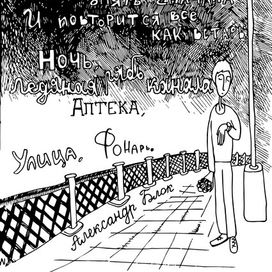 И повторится всё
как встарь.
Ночь,
ледяная рябь канала
Аптека,
Улица, Фонарь.
Александр Блок